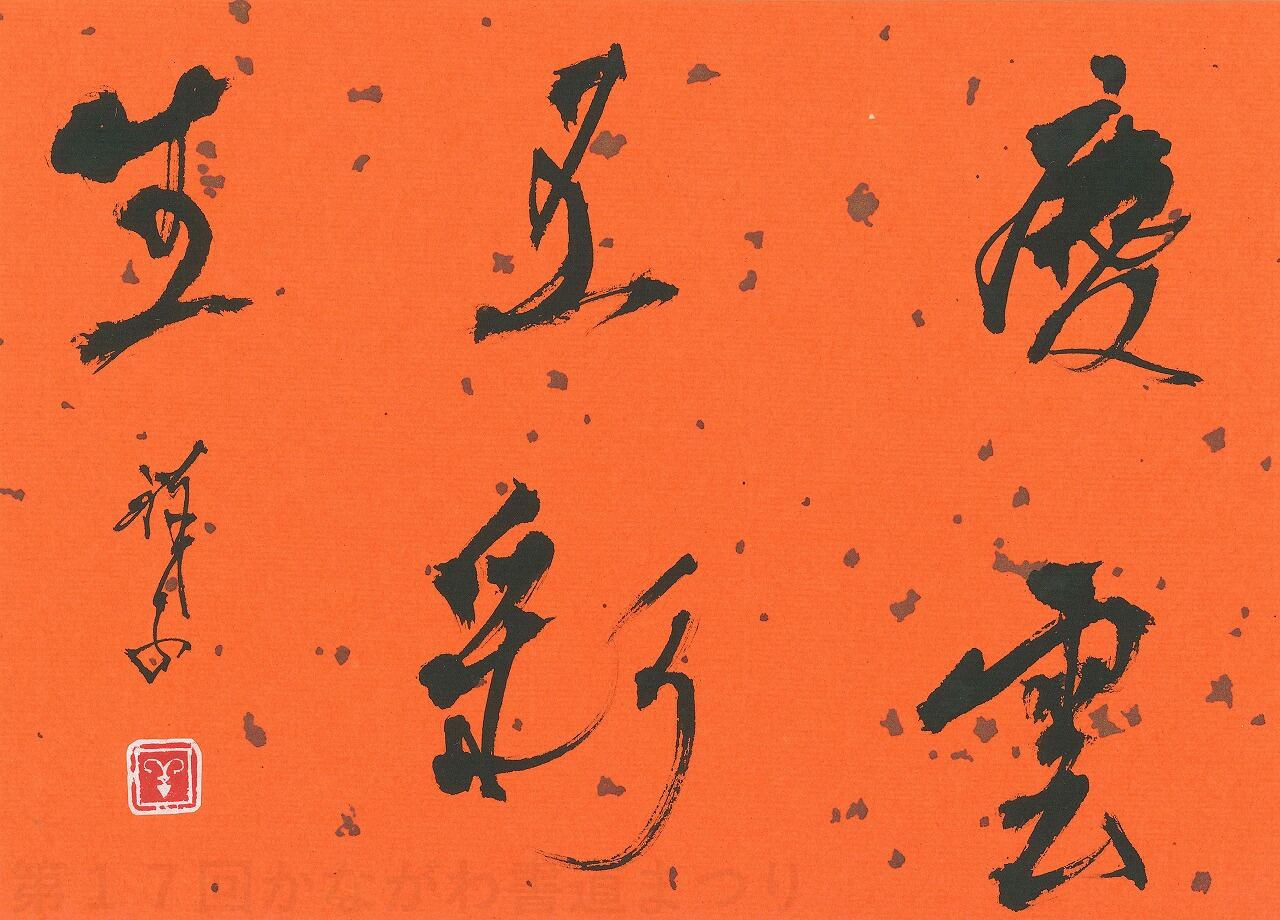 慶雲
五彩
生
第17回かながわ書道まつり